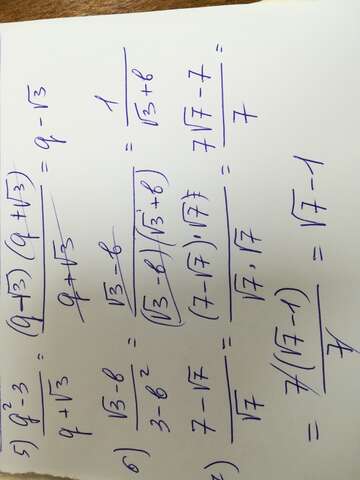 5) (q² - 3)/(q + √3) = ((q - √3)(q + √3))/(q + √3) = q - √3
6) (√3 - b)/(3 - b²) = (√3 - b)/((√3 - b)(√3 + b)) = 1/(√3 + b)
7) (7 - √7)/√7 = ((7 - √7)·√7)/(√7·√7) = (7√7 - 7)/7 =
= 7(√7 - 1)/7 = √7 - 1